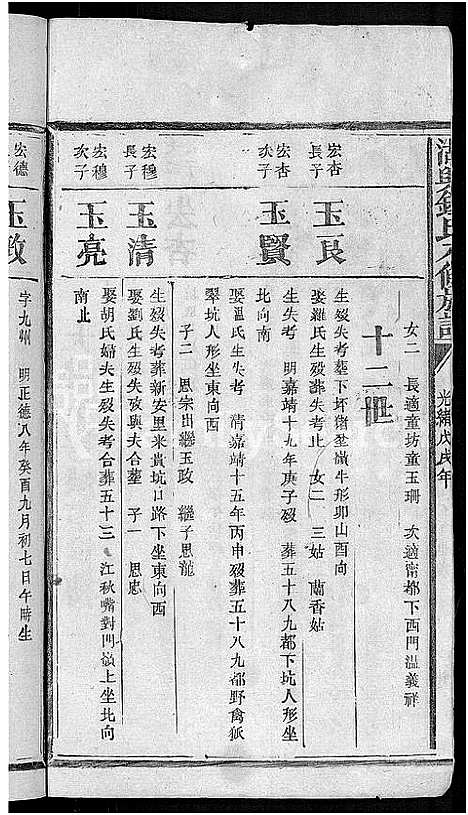 鍾氏六修族譜
光緒戊戌年
女二 長適童坊童玉珊 次適甯都下西門溫義祥
十二世
宏杏長子
玉良
生歿失考葬下坏猪坌嶺牛形卯山酉向
娶羅氏生歿葬失考止 女二 三姑 蘭香姑
宏杏次子
玉賢
生失考 明嘉靖十九年庚子歿 葬五十八九都下坑人形坐
北向南
娶溫氏生失考 清嘉靖十五年丙申歿葬五十八九都野禽狐
翠坑人形坐東向西
子二 恩宗出繼玉政 繼子恩龍
宏穆長子
玉清
生歿失考葬新安里米貴坑口路下坐東向西
娶劉氏生歿失攷與夫合葬 子一 恩忠
宏穆次子
玉亮
娶胡氏婦夫生歿失考合葬五十三 江秋嘴對門嶺上坐北向
南止
宏德
玉政
字九州 明正德八年癸酉九月初七日午時生